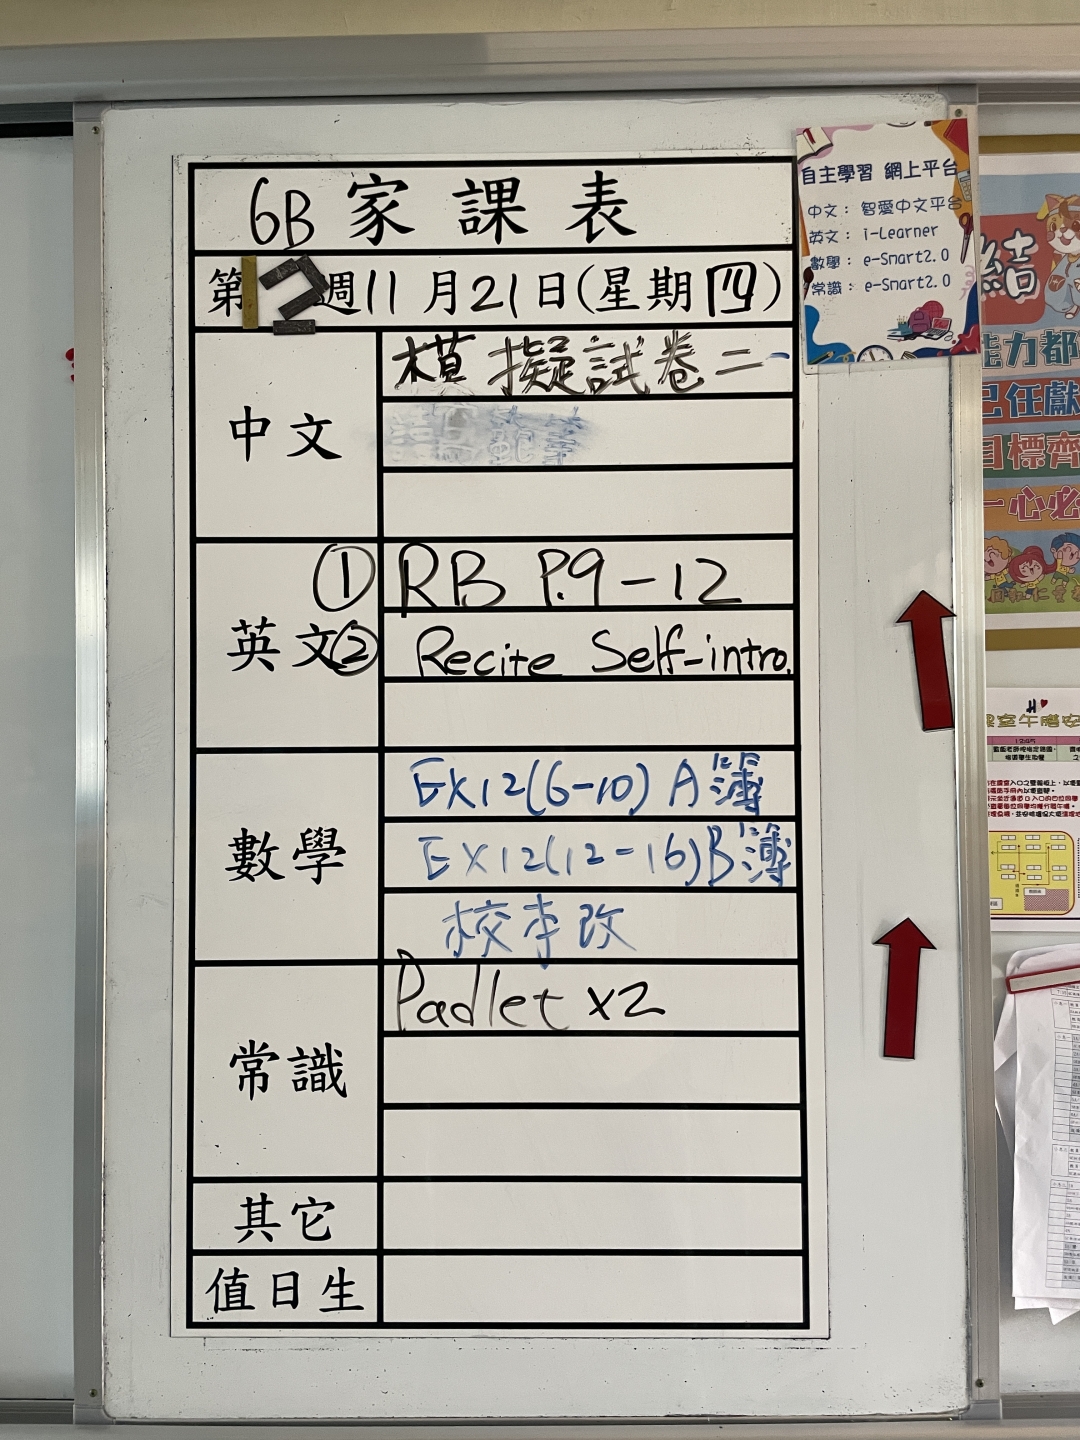 6B 家課表
第12週11月21日(星期四)
中文
模擬試卷二
英文
① RB P.9-12
② Recite Self-intro.
數學
EX12(6-10) A簿
EX12(12-16)B簿
校本改
常識
Padlet x2
其它
值日生
自主學習 網上平台
中文： 智愛中文平台
英文： i-Learner
數學： e-Smart2.0
常識： e-Smart2.0
結
能力都
己任獻
目標齊
一心必